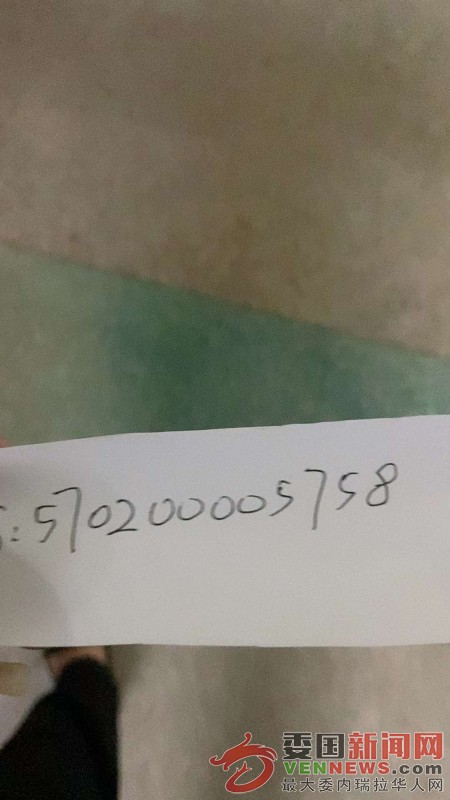 : 570200005758
委国新闻网
VENNEWS.com
最大委内瑞拉华人网